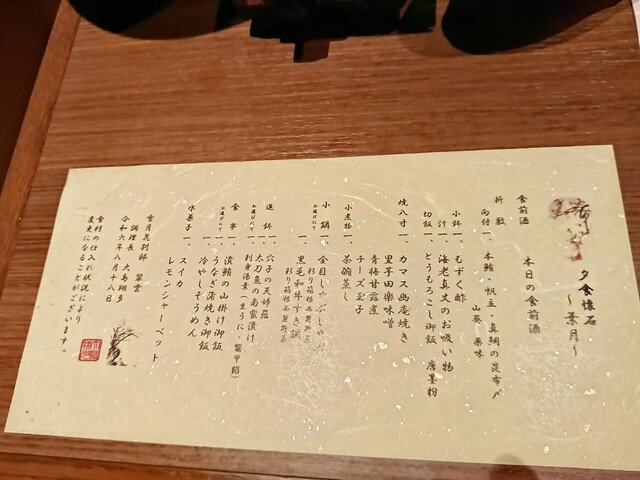 夕食懐石
～葉月～
食前酒　本日の食前酒
折敷
向付一、本鮪・帆立・真鯛の昆布〆
山葵　薬味
小鉢一、もずく酢
汁一、海老真丈のお吸い物
切飯一、とうもろこし御飯　唐墨粉
焼八寸一、カマス幽庵焼き
里芋田楽味噌
青梅甘露煮
チーズ玉子
小煮物一、茶碗蒸し
小鍋一、金目しゃぶしゃぶ
お選びにて
彩り箱根西麓野菜
一、黒毛和牛すき鍋
彩り箱根西麓野菜
進鉢一、穴子の天婦羅
お選びにて
一、太刀魚の南蛮漬け
一、刺身湯葉（生うに、鼈甲餡）
食事一、漬鮪の山掛け御飯
お選びにて
一、うなぎ蒲焼き御飯
一、冷やしそうめん
水菓子一、スイカ
レモンシャーベット
雪月花別邸　翠雲
調理長　大島翔多
令和六年八月十八日
食材の仕入れ状況により
変更になることがございます。